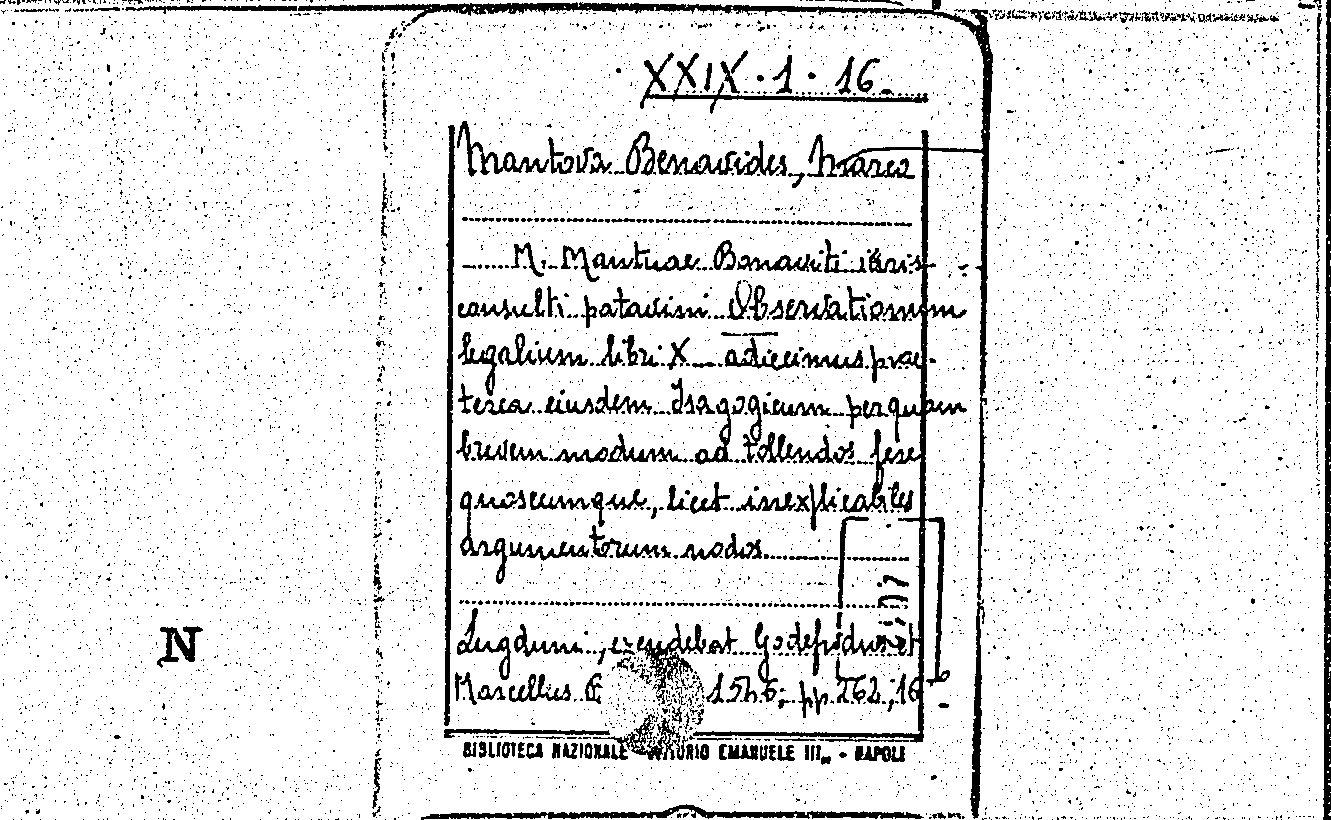 XXIX.1.16.
Mantova Benavides, Marco
M. Mantuae Bonaviti iuris
consulti patavini Observationum
legalium libri X adiecimus prae-
terea eiusdem Isagogicum perquam
brevem modum ad tollendos fere
quoscumque, licet inexplicabiles
argumentorum nodos
Lugduni, excudebat Godefridus et
Marcellus 1546; pp. 262; 16
BIBLIOTECA NAZIONALE VITTORIO EMANUELE III„ - NAPOLI
N